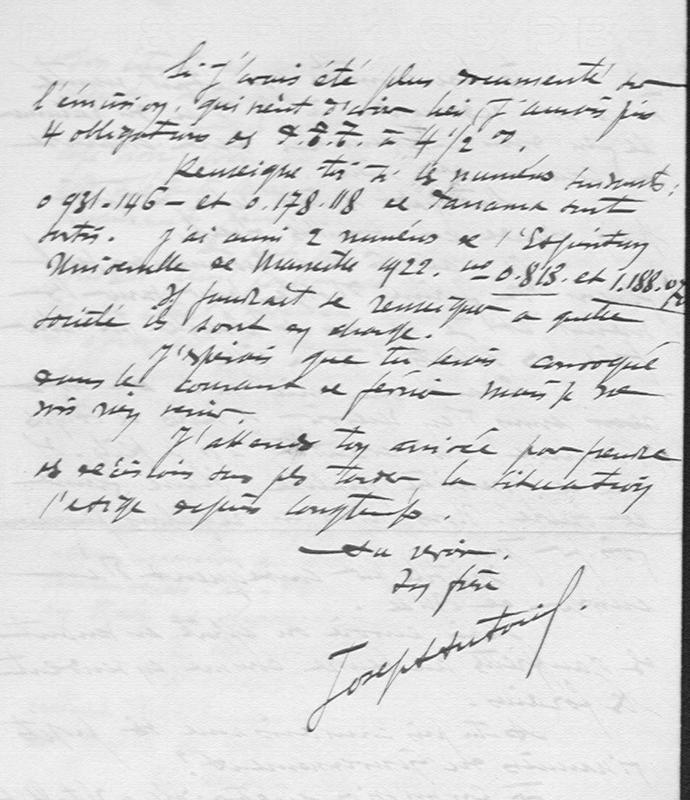 Si j'avais été plus documenté sur
l'émission, qui vient d'avoir lieu, j'aurais pris
4 obligations de P.T.T. à 4 1/2 %.
Renseigne toi si les numéros suivants :
0 931.146 - et 0.178.118 de Panama sont
sortis. J'ai aussi 2 numéros de l'Exposition
Universelle de Marseille 1922. nos 0.813 et 1.188.
Il faudrait se renseigner à quelle
société ils sont en charge.
J'espérais que tu serais convoqué
dans le courant de février mais je ne
vois rien venir.
J'attends ton arrivée pour prendre
des décisions sans plus tarder la situation
l'exige depuis longtemps.
Au revoir.
Ton frère
Joseph Antoine